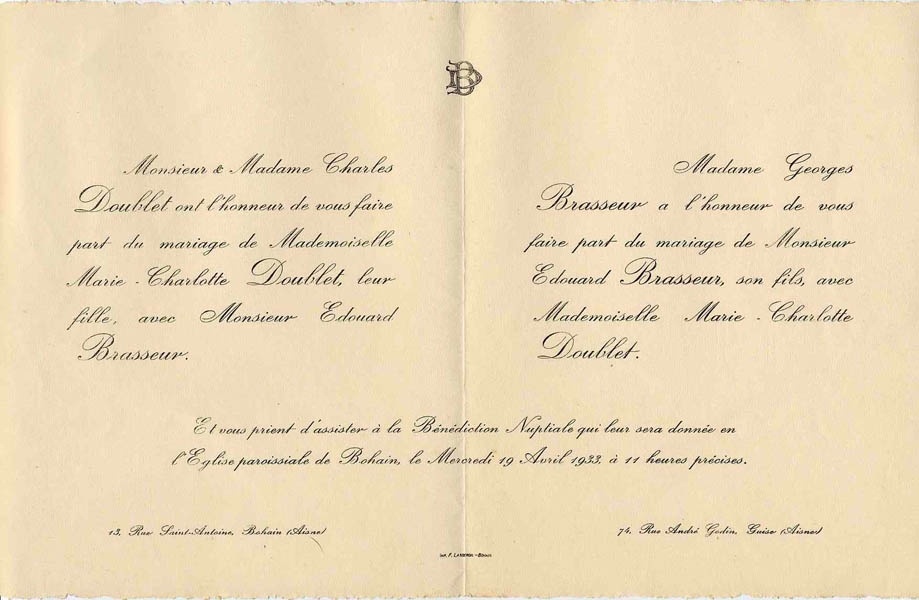 DB
Monsieur & Madame Charles
Doublet ont l'honneur de vous faire
part du mariage de Mademoiselle
Marie-Charlotte Doublet, leur
fille, avec Monsieur Edouard
Brasseur.
Madame Georges
Brasseur a l'honneur de vous
faire part du mariage de Monsieur
Edouard Brasseur, son fils, avec
Mademoiselle Marie-Charlotte
Doublet.
Et vous prient d'assister à la Bénédiction Nuptiale qui leur sera donnée en
l'Eglise paroissiale de Bohain, le Mercredi 19 Avril 1933, à 11 heures précises.
13, Rue Saint-Antoine, Bohain (Aisne)
74, Rue André Godin, Guise (Aisne)
Imp. F.